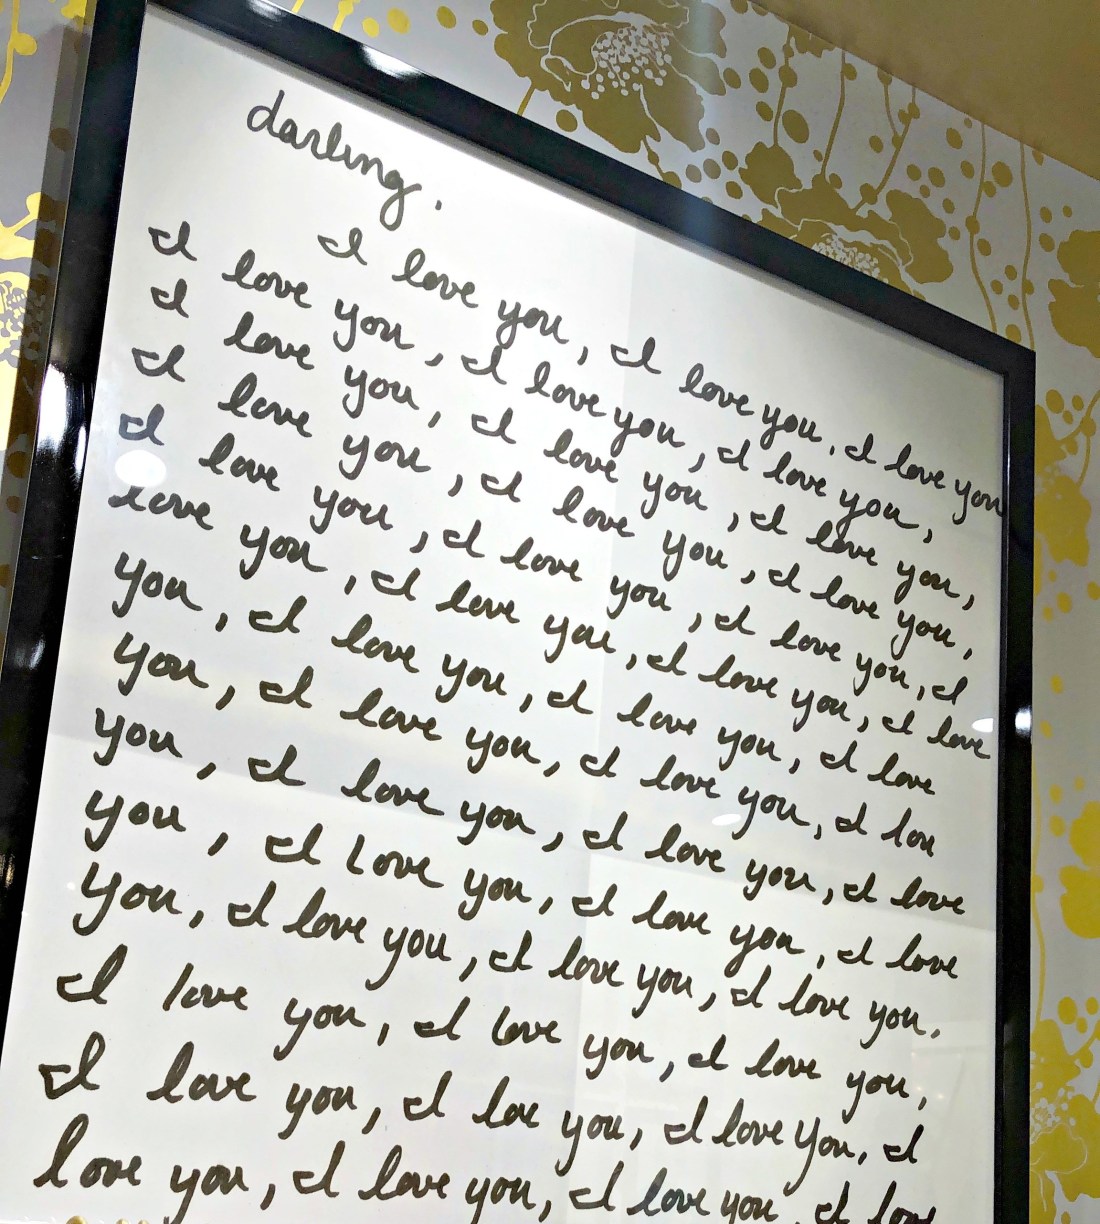 darling.
I love you, I love you, I love you
I love you, I love you, I love you,
I love you, I love you, I love you,
I love you, I love you, I love you,
I love you, I love you, I love you, I
love you, I love you, I love you, I love
you, I love you, I love you, I love
you, I love you, I love you, I love
you, I love you, I love you, I love
you, I love you, I love you, I love
you, I love you, I love you, I love you,
I love you, I love you, I love you,
I love you, I love you, I love you, I
love you, I love you, I love you, I love